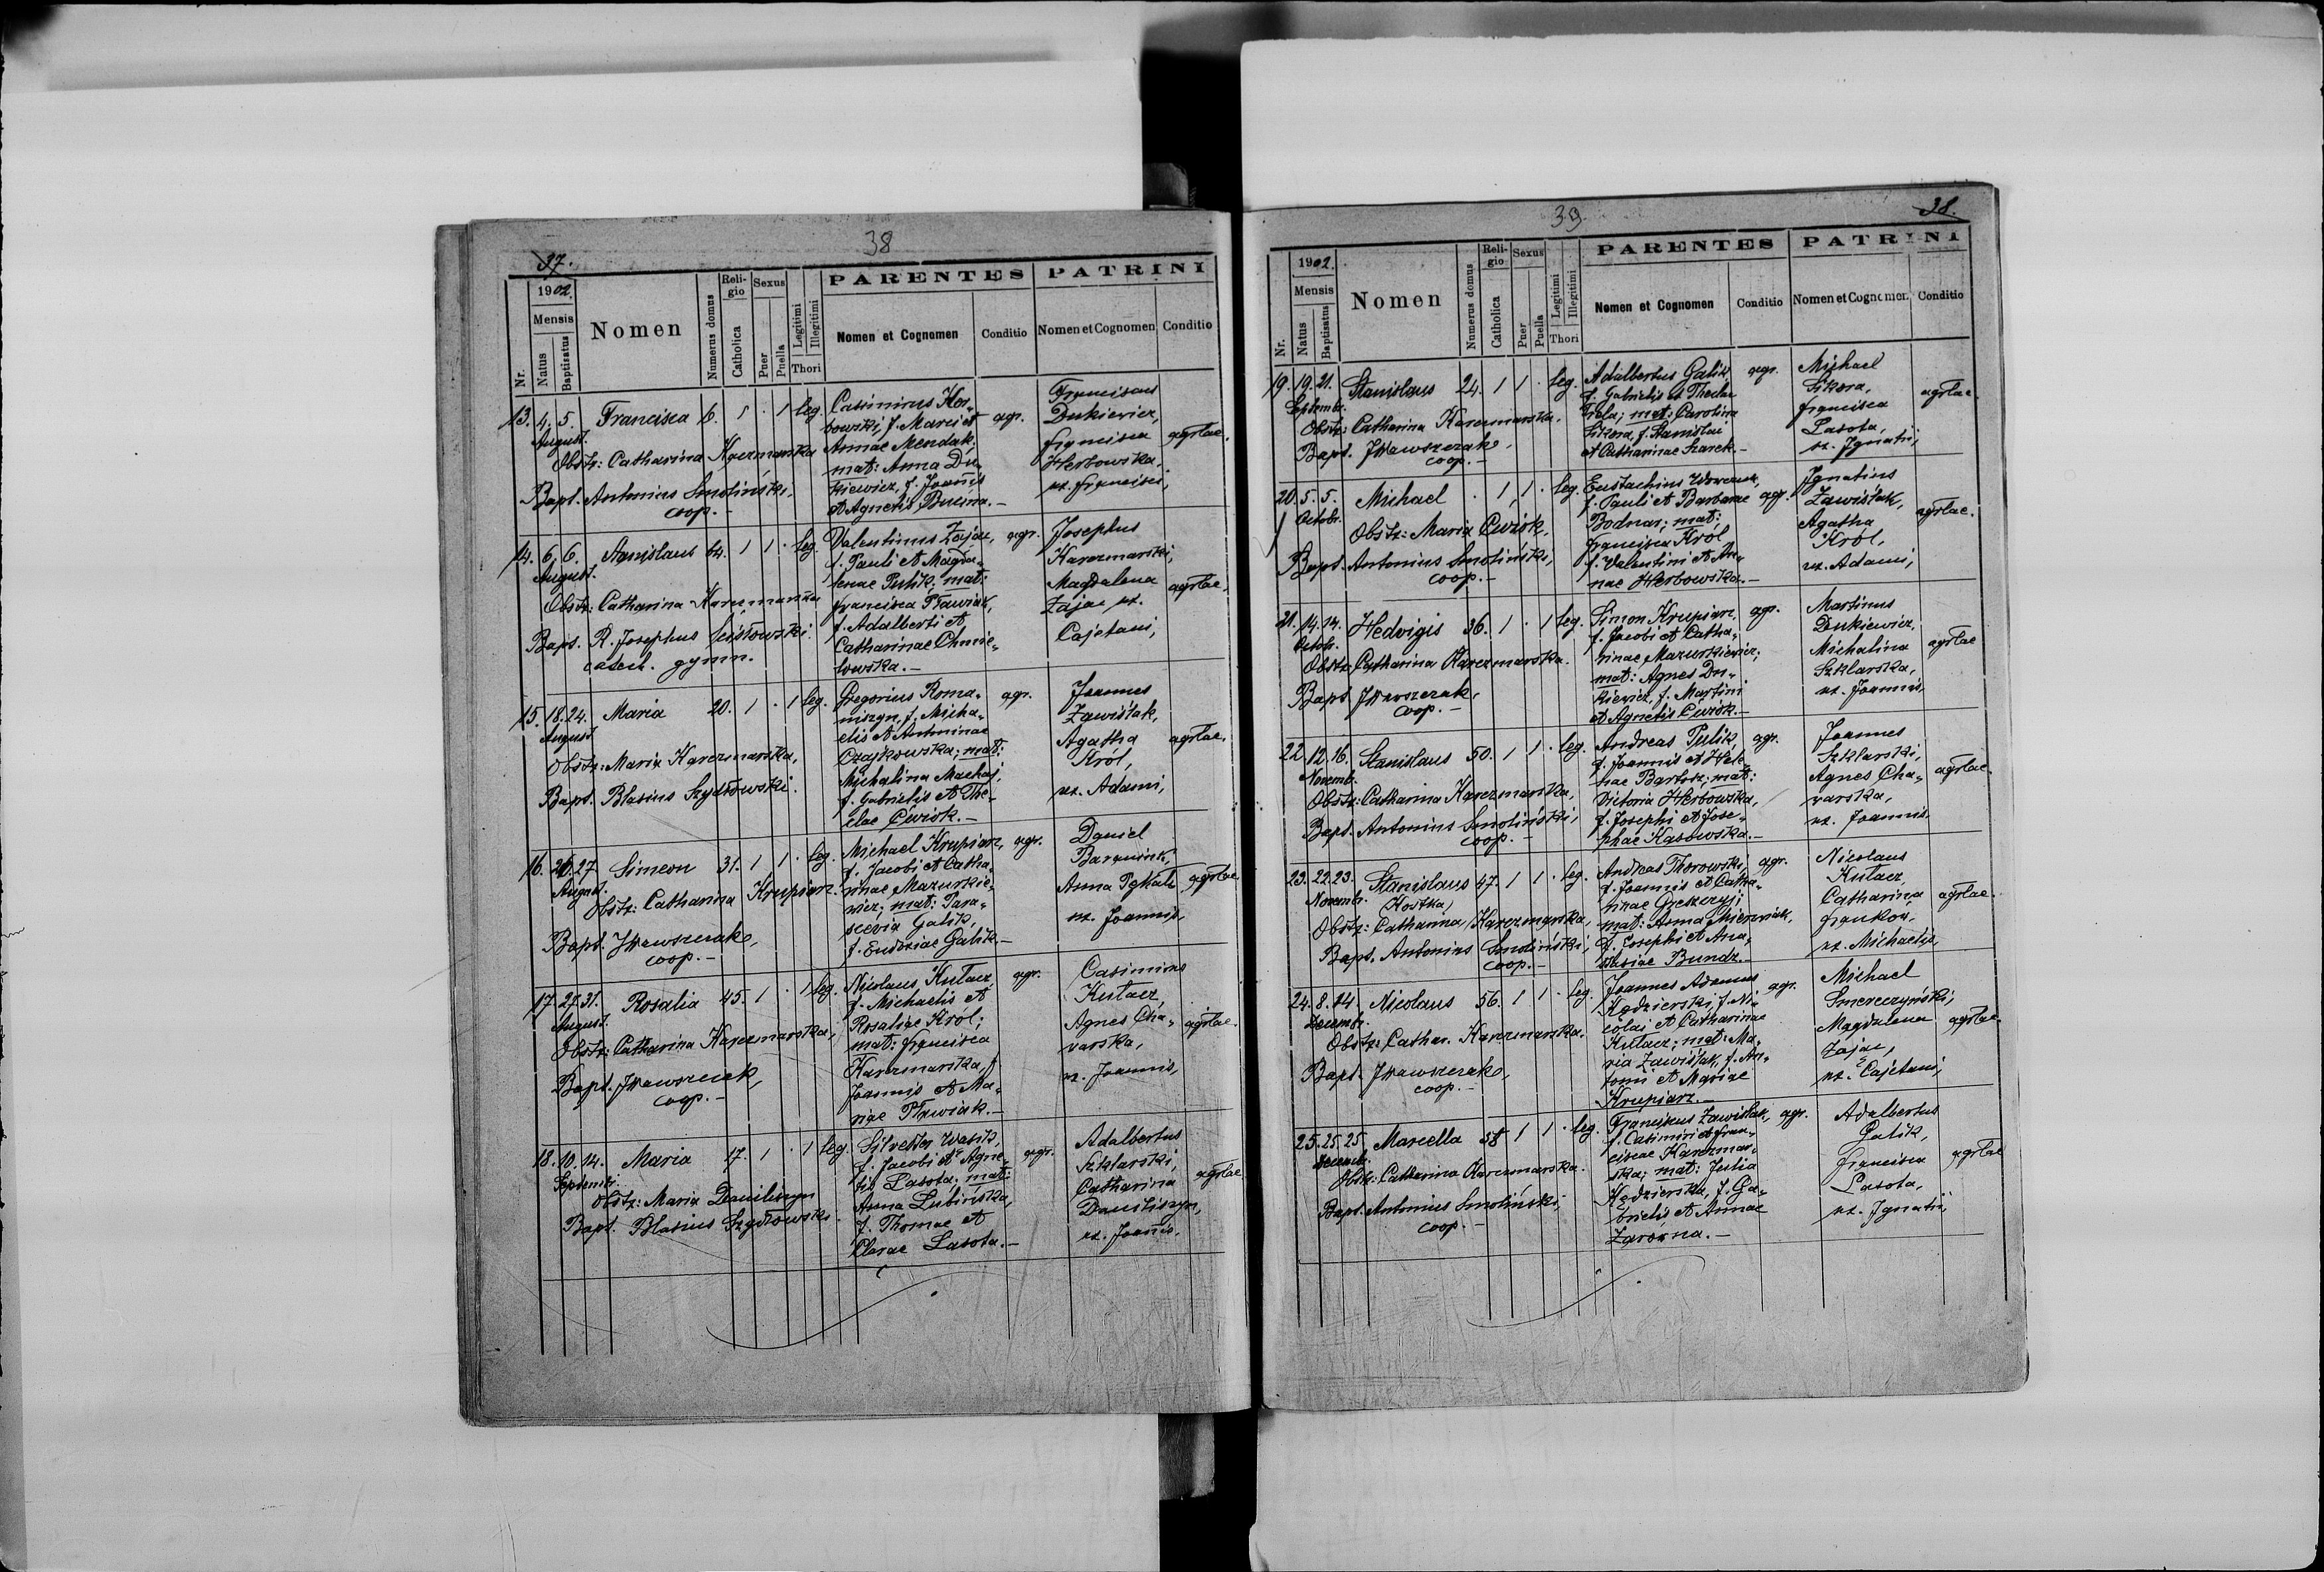 37.
38
1902.
Mensis
Nr.
Natus
Baptisatus
Nomen
Numerus domus
Religio
Catholica
Sexus
Puer
Puella
Legitimi
Illegitimi
Thori
PARENTES
Nomen et Cognomen
Conditio
PATRINI
Nomen et Cognomen
Conditio
13. 4. 5. Francisca 6. 1 . 1 leg.
August.
Obstr: Catharina Karczmarska
Bapt. Antonius Smoliński,
coop. -
Casimirus Her-
bowski, f. Marci et agr.
Annae Mendak:
mat: Anna Du-
kiewicz, f. Joannis
et Agnetis Bucma. -
Franciscus
Dukiewicz,
Francisca
Herbowska,
ux. Francisci,
agrlae.
14. 6. 6. Stanislaus 64. 1 1 . leg.
August.
Obstr: Catharina Karczmarska
Bapt. R. Josephus Scisłowski.
catech. gymn.
Valentinus Zając, agr.
f. Pauli et Magda-
lenae Pulik; mat:
Francisca Pławiak,
f. Adalberti et
Catharinae Chmie-
lowska. -
Josephus
Karczmarski,
Magdalena
Zając ux.
Cajetani,
agrlae.
15. 18. 24. Maria 20. 1 . 1 leg.
August.
Obstr: Maria Karczmarska,
Bapt. Blasius Szydłowski.
Gregorius Roma- agr.
niszyn, f. Micha-
elis et Antoninae
Czajkowska; mat:
Michalina Machaj,
f. Gabrielis et The-
clae Ćwiok. -
Joannes
Zawiślak,
Agatha
Król,
ux. Adami,
agrlae.
16. 26. 27. Simeon 31. 1 1 . leg.
August.
Obstr: Catharina Krupiarz.
Bapt. J Wawszczak,
coop. -
Michael Krupiarz, agr.
f. Jacobi et Catha-
rinae Mazurkie-
wicz; mat: Para-
scevia Galik,
f. Eudoxiae Galik. -
Daniel
Anna
ux. Joannis,
agrlae
17. 27. 31. Rosalia 45. 1 . 1 leg.
August.
Obstr: Catharina Karczmarska,
Bapt. J Wawszczak,
coop. -
Nicolaus Kułacz, agr.
f. Michaelis et
Rosaliae Król;
mat: Francisca
Karczmarska, f.
Joannis et Ma-
riae Pławiak. -
Casimirus
Kułacz,
Agnes Cha-
varska,
ux. Joannis,
agrlae.
18. 10. 14. Maria 17. 1 . 1 leg.
Septembr.
Obstr: Maria Daniliszyn
Bapt. Blasius Szydłowski.
Silvester Wasik, agr.
f. Jacobi et Agne-
tis Lasota; mat:
Anna Lubińska,
f. Thomae et
Clarae Lasota. -
Adalbertus
Szklarski,
Catharina
Daniliszyn,
ux. Joannis.
agrlae
39.
38.
1902.
Mensis
Nr.
Natus
Baptisatus
Nomen
Numerus domus
Religio
Catholica
Sexus
Puer
Puella
Legitimi
Illegitimi
Thori
PARENTES
Nomen et Cognomen
Conditio
PATRINI
Nomen et Cognomen
Conditio
19. 19. 21. Stanislaus 24. 1 1 . leg.
Septembr.
Obstr: Catharina Karczmarska.
Bapt. J Wawszczak,
coop. -
Adalbertus Galik agr.
f. Gabrielis et Theclae
mat: Carolina
Sikora, f. Stanislai
et Catharinae Szarek. -
Michael
Sikora,
Francisca
Lasota,
ux. Ignatii,
agrlae.
20. 5. 5. Michael . 1 1 . leg.
Octobr.
Obstr: Maria Ćwiok,
Bapt. Antonius Smoliński,
coop. -
Eustachius
f. Pauli et Barbarae agr.
Bodnar; mat:
Francisca Król
f. Valentini et An-
nae Herbowska. -
Ignatius
Zawiślak,
Agatha
Król,
ux. Adami,
agrlae.
21. 14. 14. Hedvigis 36. 1 . 1 leg.
Octobr.
Obstr: Catharina Karczmarska.
Bapt. J Wawszczak,
coop. -
Simon Krupiarz, agr.
f. Jacobi et Catha-
rinae Mazurkiewicz;
mat: Agnes Du-
kiewicz, f. Martini
et Agnetis Ćwiok. -
Martinus
Dukiewicz,
Michalina
Szklarska,
ux. Joannis,
agrlae
22. 12. 16. Stanislaus 50. 1 1 . leg.
Novemb.
Obstr: Catharina Karczmarska,
Bapt. Antonius Smoliński,
coop. -
Andreas Pulik, agr.
f. Joannis et Hele-
nae mat:
Victoria Herbowska,
f. Josephi et Jose-
phae Kasowska. -
Joannes
Szklarski,
Agnes Cha-
varska,
ux. Joannis.
agrlae.
23. 22. 23. Stanislaus 47. 1 1 . leg.
Novemb. Kostka,
Obstr: Catharina Karczmarska,
Bapt. Antonius Smoliński,
coop. -
Andreas Thorowski, agr.
f. Joannis et Catha-
rinae
mat: Anna
f. Josephi et Ana-
stasiae Bundz. -
Nicolaus
Kułacz,
Catharina
Franków,
ux. Michaelis,
agrlae.
24. 8. 14. Nicolaus 56. 1 1 . leg.
Decemb.
Obstr: Cathar. Karczmarska.
Bapt. J Wawszczak,
coop. -
Joannes Adamus agr.
Kędzierski, f. Ni-
colai et Catharinae
Kułacz; mat: Ma-
ria Zawiślak, f. An-
tonii et Mariae
Krupiarz. -
Michael
Smereczyński,
Magdalena
Zając,
ux. Cajetani,
agrlae.
25. 25. 25. Marcella 58 1 1 . leg.
Decemb.
Obstr: Catharina Karczmarska.
Bapt. Antonius Smoliński,
coop. -
Franciscus Zawiślak, agr.
f. Casimiri et Fran-
ciscae Karczmar-
ska; mat: Julia
Kędzierska, f. Ga-
brielis et Annae
-
Adalbertus
Galik,
Francisca
Lasota,
ux. Ignatii,
agrlae